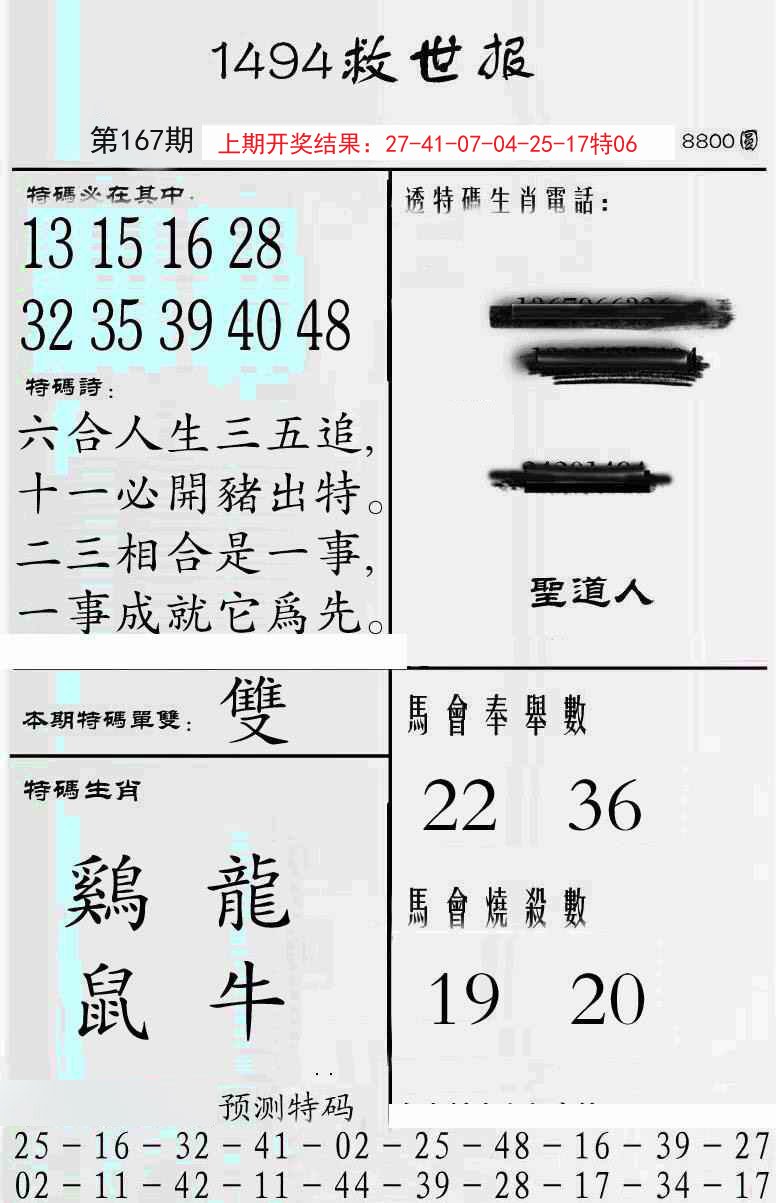 1494救世报
第167期 上期开奖结果：27-41-07-04-25-17特06 8800圆
特碼必在其中.
13 15 16 28
32 35 39 40 48
特碼詩：
六合人生三五追,
十一必開豬出特。
二三相合是一事,
一事成就它爲先。
本期特碼單雙： 雙
特碼生肖
鷄 龍
鼠 牛
透特碼生肖電話：
聖道人
馬會奉舉數
22 36
馬會燒殺數
19 20
预测特码
25－16－32－41－02－25－48－16－39－27
02－11－42－11－44－39－28－17－34－17